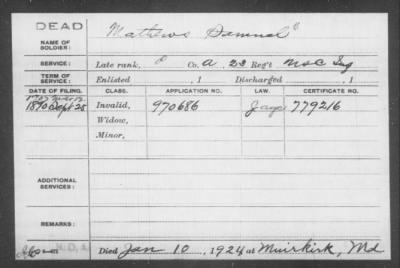 DEAD
NAME OF SOLDIER: Mathews Samuel
SERVICE: Late rank, Co. A 23 Reg't USC Inf
TERM OF SERVICE: Enlisted , 1 Discharged , 1
DATE OF FILING. CLASS. APPLICATION NO. LAW. CERTIFICATE NO.
1890 Sept 25 Invalid, 970686 779216
Widow,
Minor,
ADDITIONAL SERVICES:
REMARKS:
Died Jan 10, 1924 at Muirkirk, Md